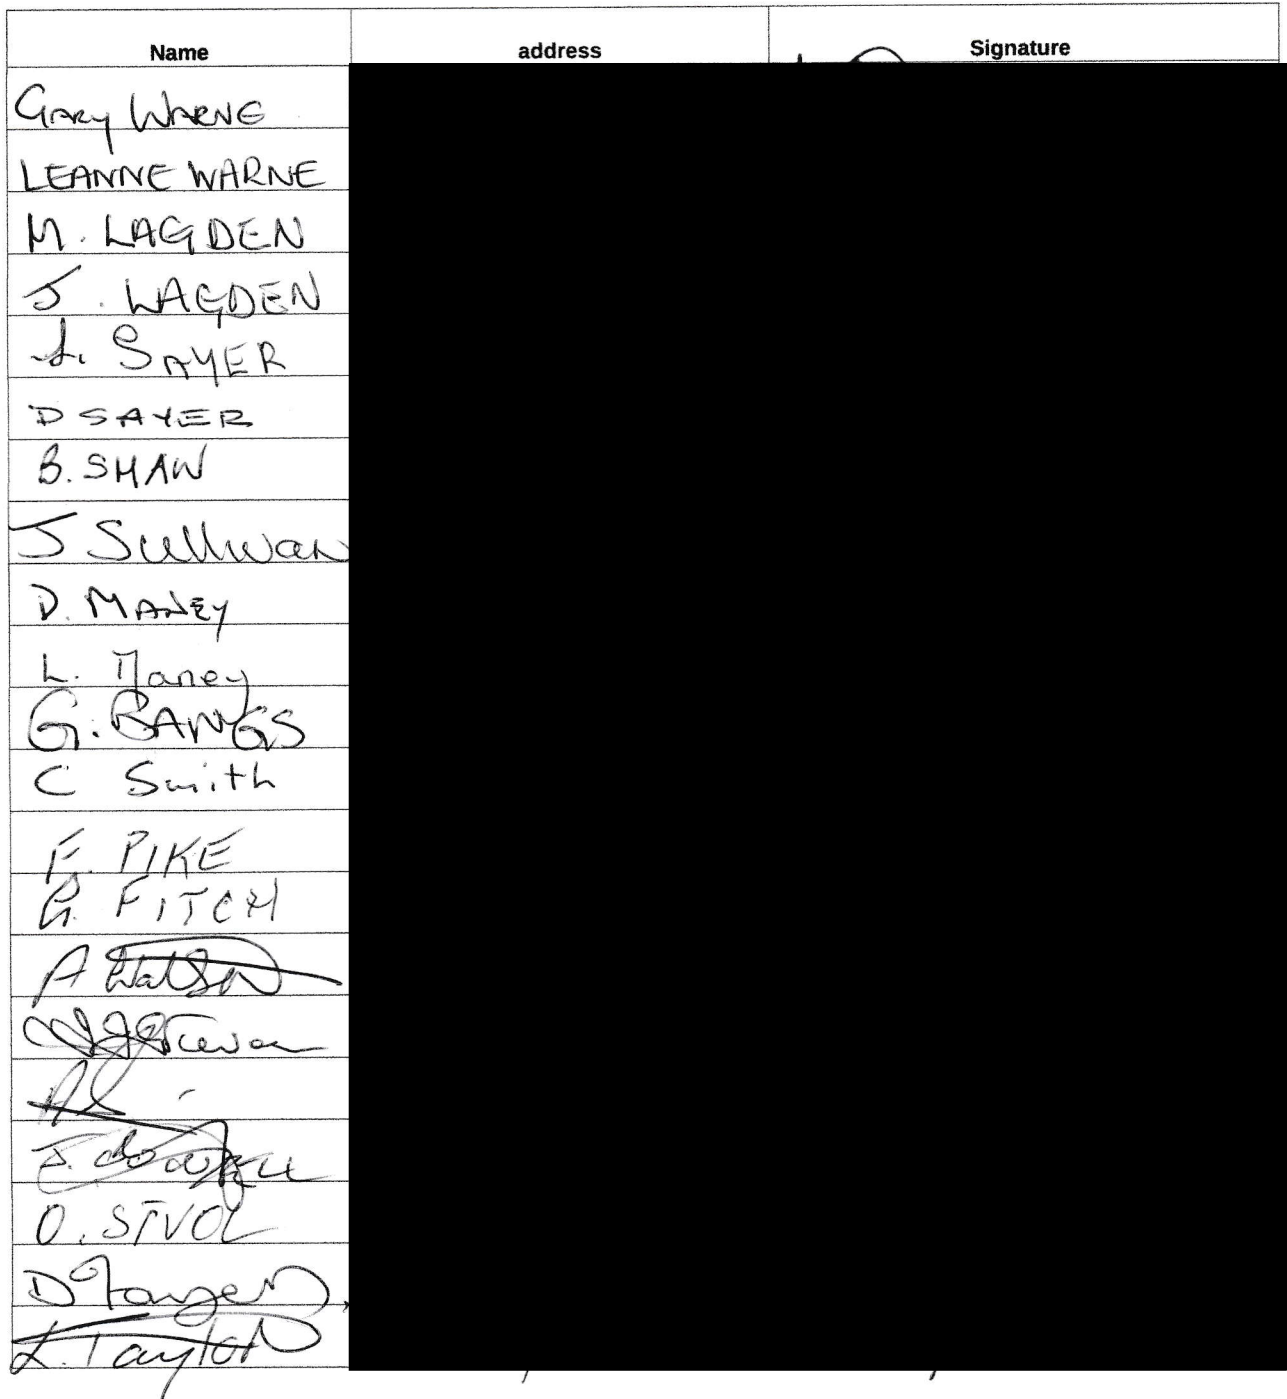 Name address Signature
Gary WARNE
LEANNE WARNE
M. LAGDEN
J. LAGDEN
L. SAYER
D SAYER
B. SHAW
J Sullivan
D. MANEY
L. Maney
G. BANGS
C Smith
F. PIKE
G. FITCH
A Watson
O. STVOL
D
L. Taylor